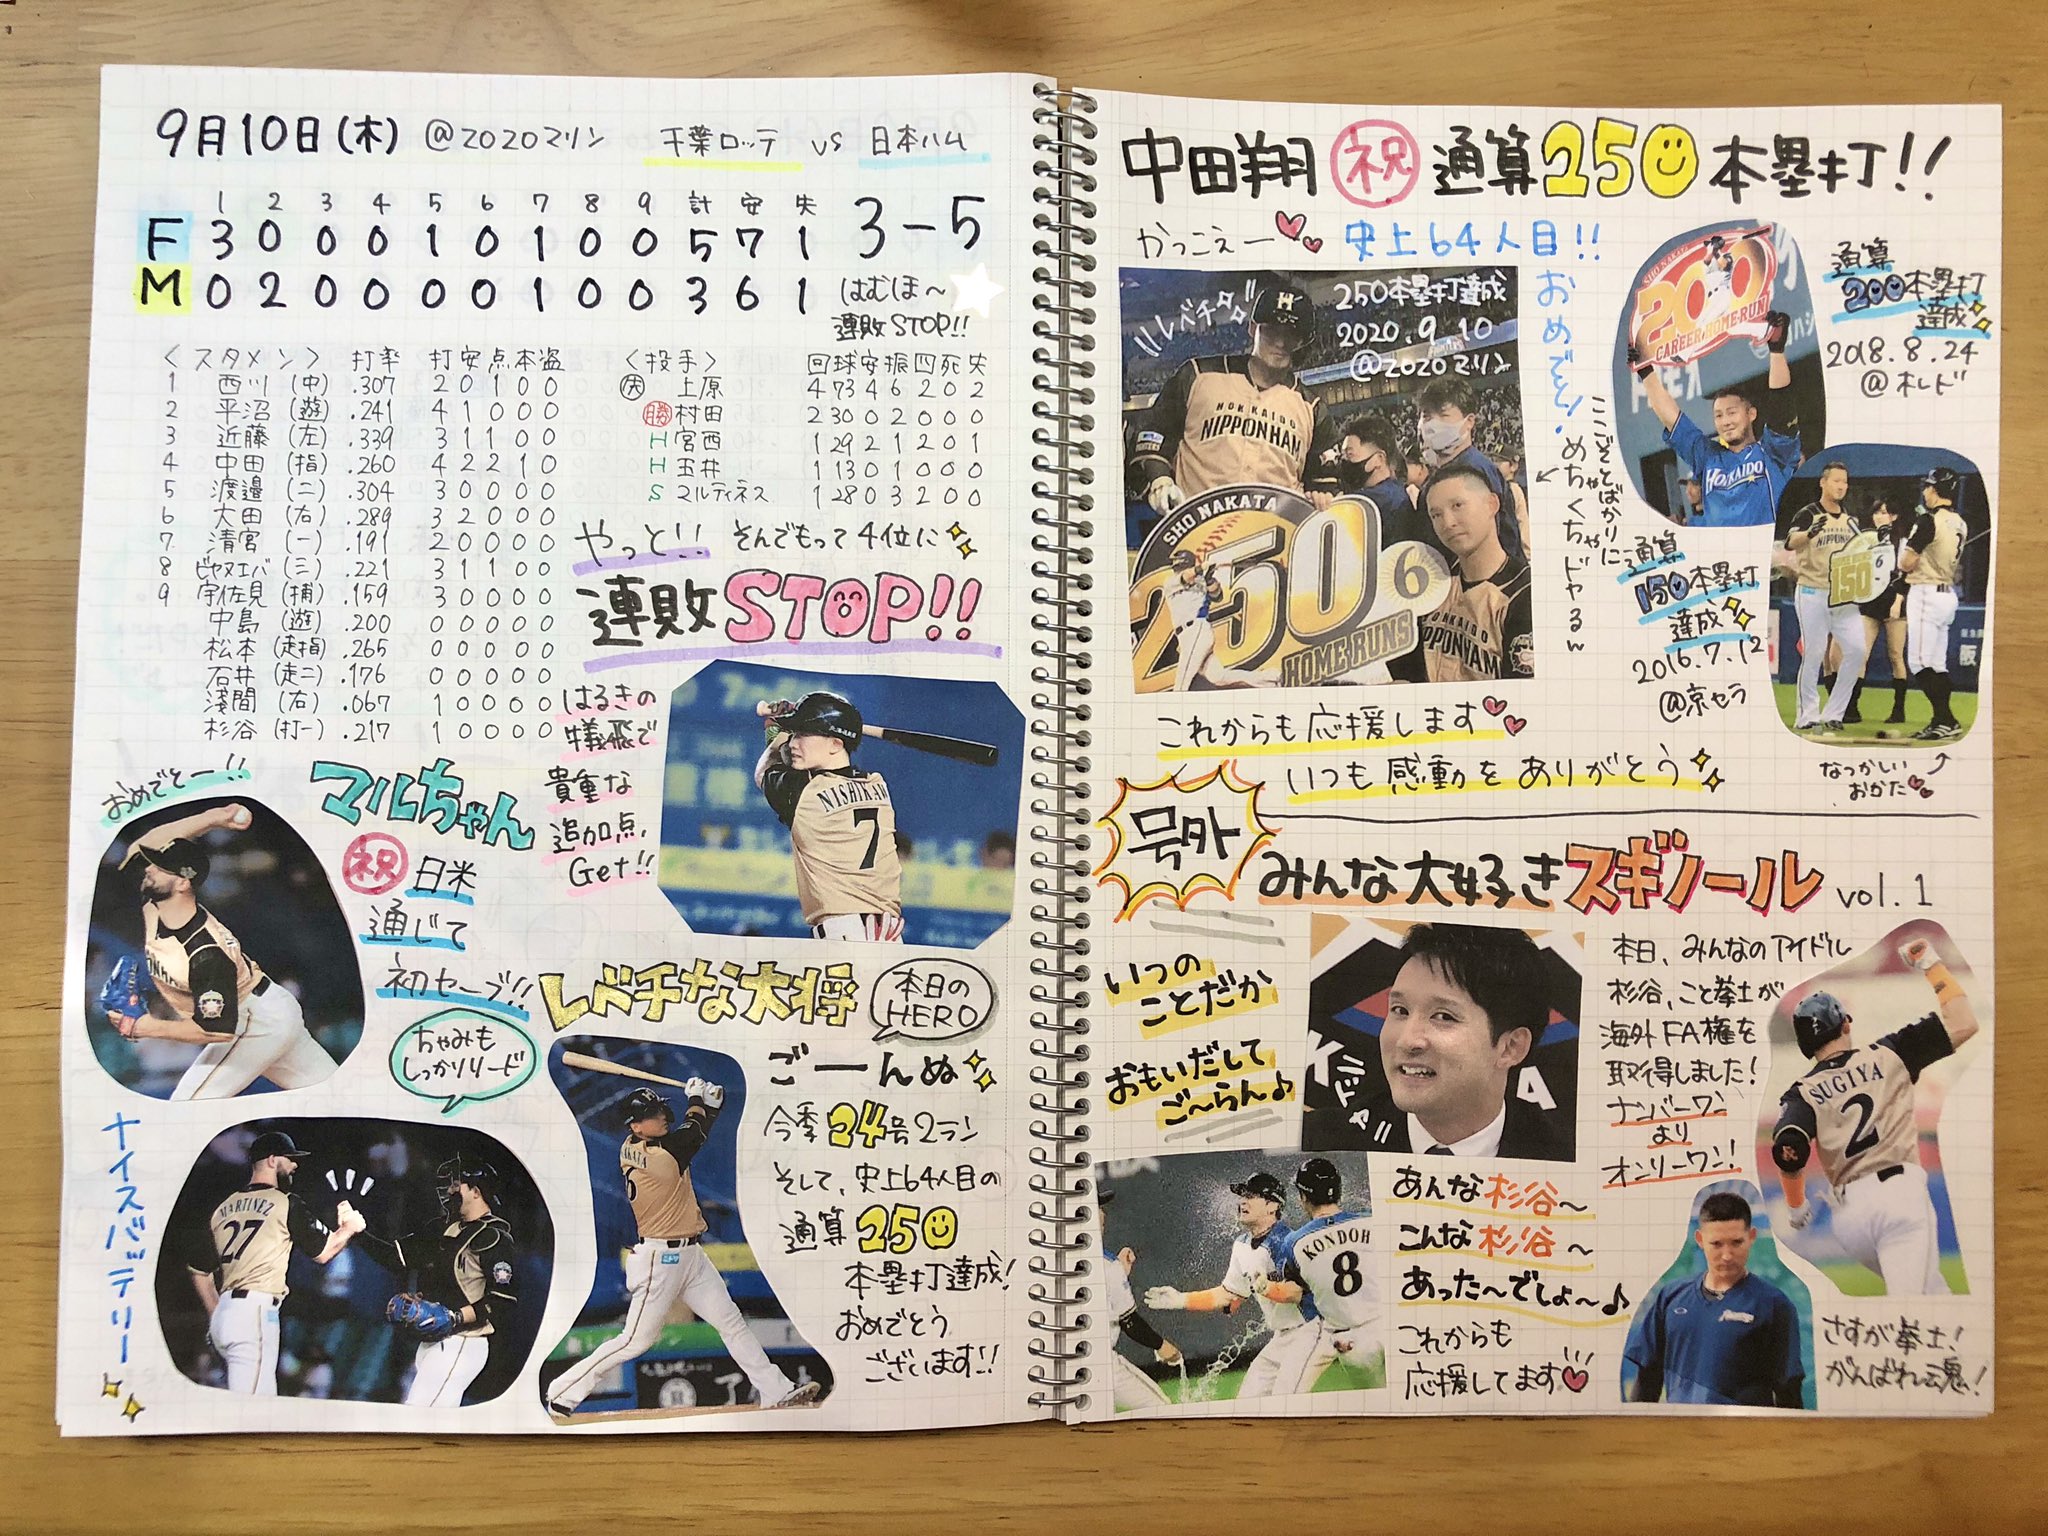 9月10日(木) @ZOZOマリン 千葉ロッテ vs 日本ハム
1 2 3 4 5 6 7 8 9 計 安 失
F 3 0 0 0 1 0 1 0 0 5 7 1
M 0 2 0 0 0 0 1 0 0 3 6 1
3-5
はむほ〜
連敗STOP!!
<スタメン> 打率 打 安 点 本 盗
1 西川 (中) .307 2 0 1 0 0
2 平沼 (遊) .241 4 1 0 0 0
3 近藤 (左) .339 3 1 1 0 0
4 中田 (指) .260 4 2 2 1 0
5 渡邉 (二) .304 3 0 0 0 0
6 大田 (右) .289 3 2 0 0 0
7 清宮 (一) .191 2 0 0 0 0
8 ビヤヌエバ (三) .221 3 1 1 0 0
9 宇佐見 (捕) .159 3 0 0 0 0
中島 (遊) .200 0 0 0 0 0
松本 (走指) .265 0 0 0 0 0
石井 (走二) .176 0 0 0 0 0
淺間 (右) .067 1 0 0 0 0
杉谷 (打一) .217 1 0 0 0 0
<投手> 回 球 安 振 四 死 失
先 上原 4 73 4 6 2 0 2
勝 村田 2 30 0 2 0 0 0
H 宮西 1 29 2 1 2 0 1
H 玉井 1 13 0 1 0 0 0
S マルティネス 1 28 0 3 2 0 0
やっと!! そんでもって4位に
連敗STOP!!
はるきの
犠飛で
貴重な
追加点
Get!!
NISHIKAW
7
おめでとー!!
マルちゃん
祝 日米
通じて
初セーブ!!
ちゃみも
しっかりリード
MARTINEZ
27
ナイスバッテリー
レバチな大将
本日の
HERO
ごーんぬ
今季24号2ラン
そして、史上64人目の
通算250
本塁打達成!
おめでとう
ございます!!
中田翔 祝 通算250本塁打!!
かっこえー
史上64人目!!
おめでとう!
"レバチ"
250本塁打達成
2020.9.10
@ZOZOマリン
HOKKAIDO
NIPPONHAM
SHO NAKATA
250
6
HOME RUNS
HOKKAIDO
NIPPONHAM
ここぞとばかりに
めちゃくちゃドヤるんw
SHO NAKATA
200
CAREER HOME RUN
HOKKAIDO
通算
200本塁打
達成
2018.8.24
@札ド
通算
150本塁打
達成
2016.7.12
@京セラ
150
なつかしい
おかた
これからも応援します
いつも感動をありがとう
号外
みんな大好きスギノール vol.1
いつの
ことだか
おもいだして
ご〜らん♪
"ニヤァ"
本日、みんなのアイドル
杉谷、こと拳士が
海外FA権を
取得しました!
ナンバーワン
より
オンリーワン!
SUGIYA
2
KONDOH
8
あんな杉谷〜
こんな杉谷〜
あった〜でしょ〜♪
これからも
応援してます
さすが拳士!
がんばれ魂!